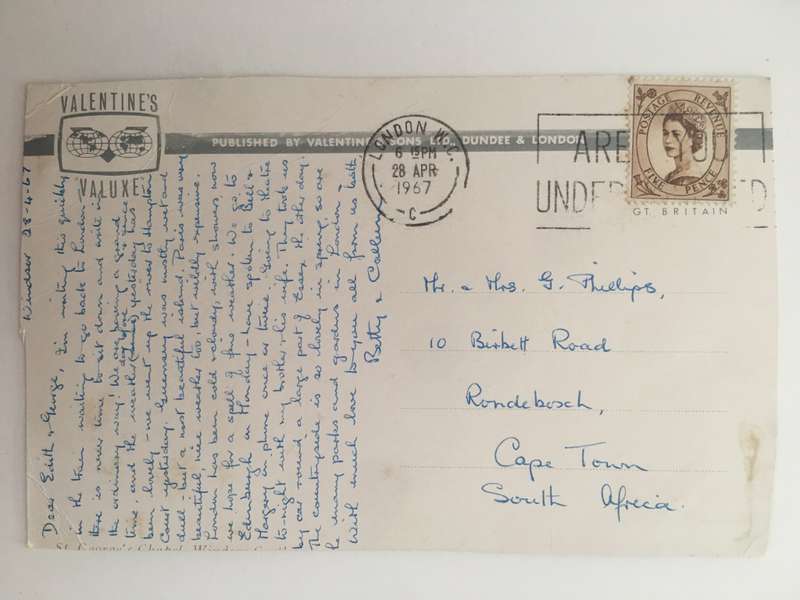 VALENTINE'S
VALUXE
PUBLISHED BY VALENTINE SONS LTD. DUNDEE & LONDON
LONDON W.C.
6 15PM
28 APR
1967
C
ARE YOU
UNDER
POSTAGE REVENUE
FIVE PENCE
GT. BRITAIN
Windsor 28-4-67
Dear Edith & George, I'm writing this quickly
in the train waiting to go back to London –
there is never time to sit down and write in
the ordinary way. We are having a grand
time and the weather yesterday has
day before & since
been lovely – we went up the river to Hampton
Court yesterday. Guernsey was mostly wet and
dull – but a most beautiful island. Paris was very
beautiful, nice weather too, but wildly expensive.
London has been cold & cloudy, with showers, now
we hope for a spell of fine weather. We go to
Edinburgh on Monday – have spoken to Bell &
Margery on phone once or twice. Going to theatre
to-night with my brother & his wife. They took us
by car round a large part of Essex the other day.
The countryside is so lovely in spring, so are
the many parks and gardens in London.
With much love to you all from us both,
Betty &
Mr. & Mrs. G. Phillips,
10 Birkett Road
Rondebosch,
Cape Town
South Africa.
St. George's Chapel, Windsor